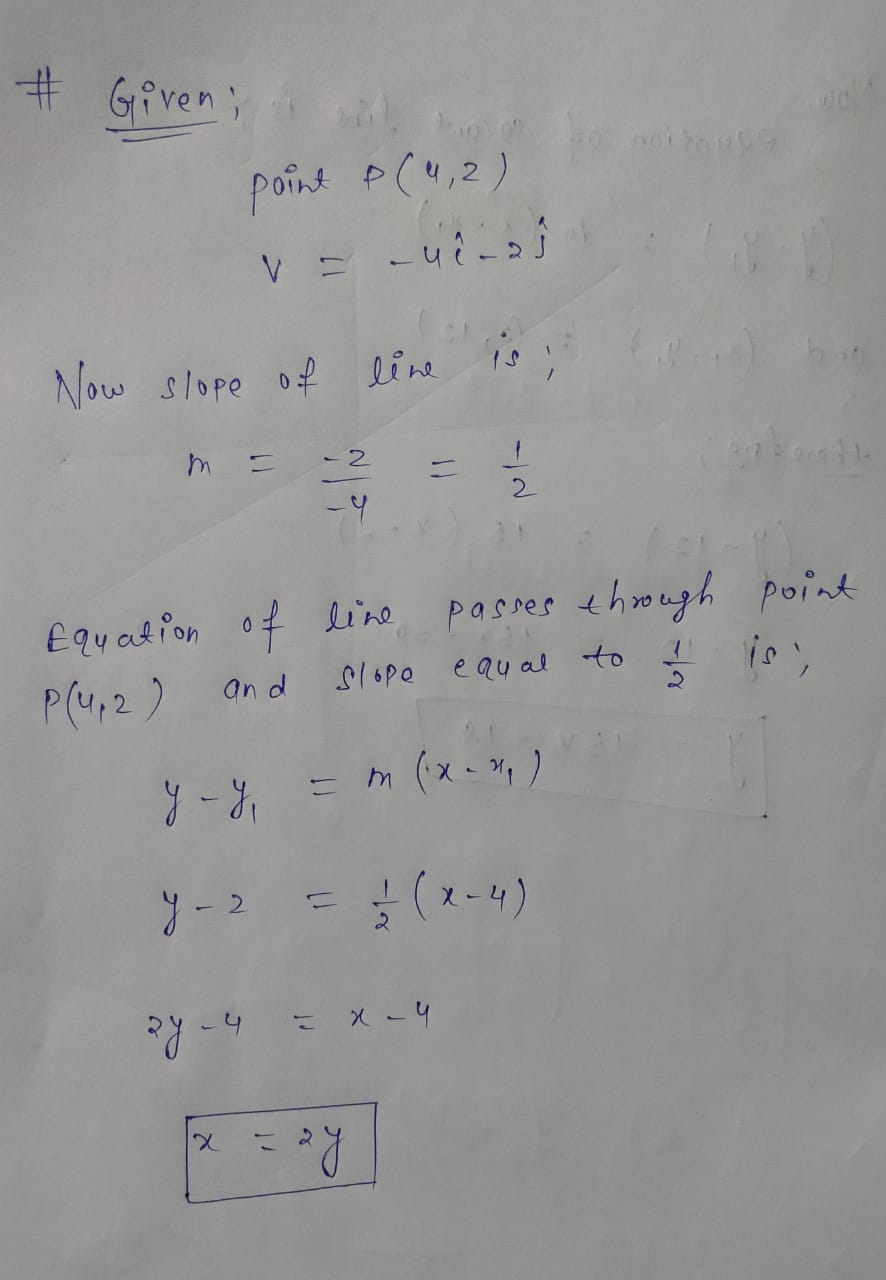 # Given;
point P(4,2)
v = -4î-2ĵ
Now slope of line is;
m = -2/-4 = 1/2
Equation of line passes through point
P(4,2) and slope equal to 1/2 is;
y-y₁ = m(x-x₁)
y-2 = 1/2(x-4)
2y-4 = x-4
x = 2y